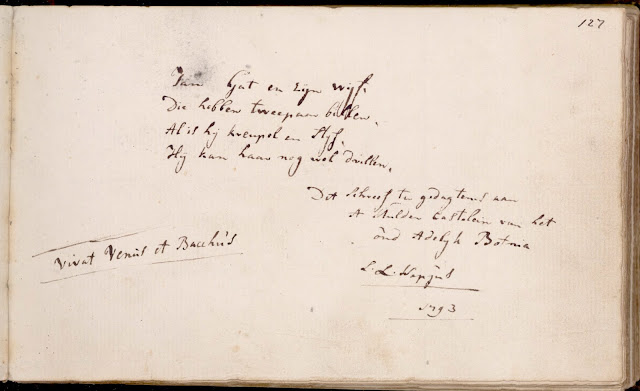 127
Jan Gat en zijn wijf.
Die hebben twee paar billen,
Al is hij kreupel en Stijf,
Hij kan haar nog wel drillen.
Dit Schreef te gedagtenis aan
A Mulder Castelein van het
oud Adelyk Botma
L. L.
1793
Vivat Venus et Bacchüs